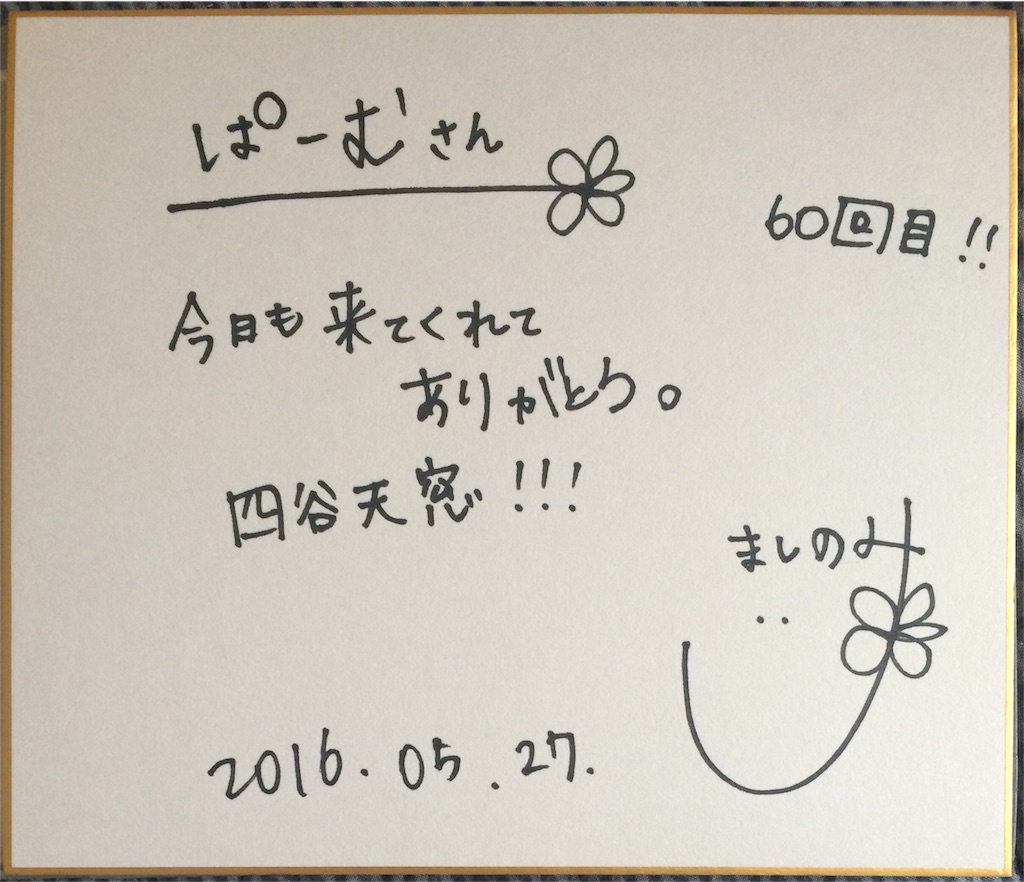 ぱーむさん
60回目!!
今日も来てくれて
ありがとう。
四谷天窓!!!
ましのみ
2016.05.27.